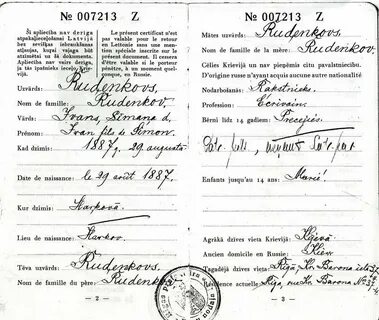 № 007213 Z
Šī apliecība nav derīga
atpakaļieceļošanai Latvijā
bez sevišķas iebraukšanas
atzīmes, kuŗai vajaga būt
atzīmētai uz šī dokumenta.
Apliecība nav vairs derīga,
ja tās īpašnieks ieceļo, kaut
Krievijā.
Le présent certificat n'est
pas valable pour le retour
en Lettonie sans une men-
tion spéciale inscrite sur
le présent document. Ce
certificat cesse d'être valable
si le porteur pénètre, à un
moment quelconque,
en Russie.
Uzvārds: Rudenkovs.
Nom de famille: Rudenkov.
Vārds: Ivans, Sīmaņa d.
Prénom: Ivan fils de Simon.
Kad dzimis: 1887. g. 29. augustā
Date de naissance: le 29 août 1887.
Kur dzimis: Harkovā.
Lieu de naissance: Karkov.
Tēva uzvārds: Rudenkovs.
Nom de famille du père: Rudenkov.
— 2 —
№ 007213 Z
Mātes uzvārds: Rudenkovs.
Nom de famille de la mère: Rudenkov.
Cēlies Krievijā un nav pieņēmis citu pavalstniecību.
D'origine russe n'ayant acquis aucune autre nationalité
Nodarbošanās: Rakstnieks.
Profession: Écrivain.
Bērni līdz 14 gadiem: Precējies.
Enfants jusqu'au 14 ans: Marié!
Agrākā dzīves vieta Krievijā: Kijevā.
Ancien domicile en Russie: Kiev.
Tagadējā dzīves vieta: Rīgā, Kr. Barona ielā 37
Résidence actuelle: Riga, rue Kr. Barona № 37
— 3 —